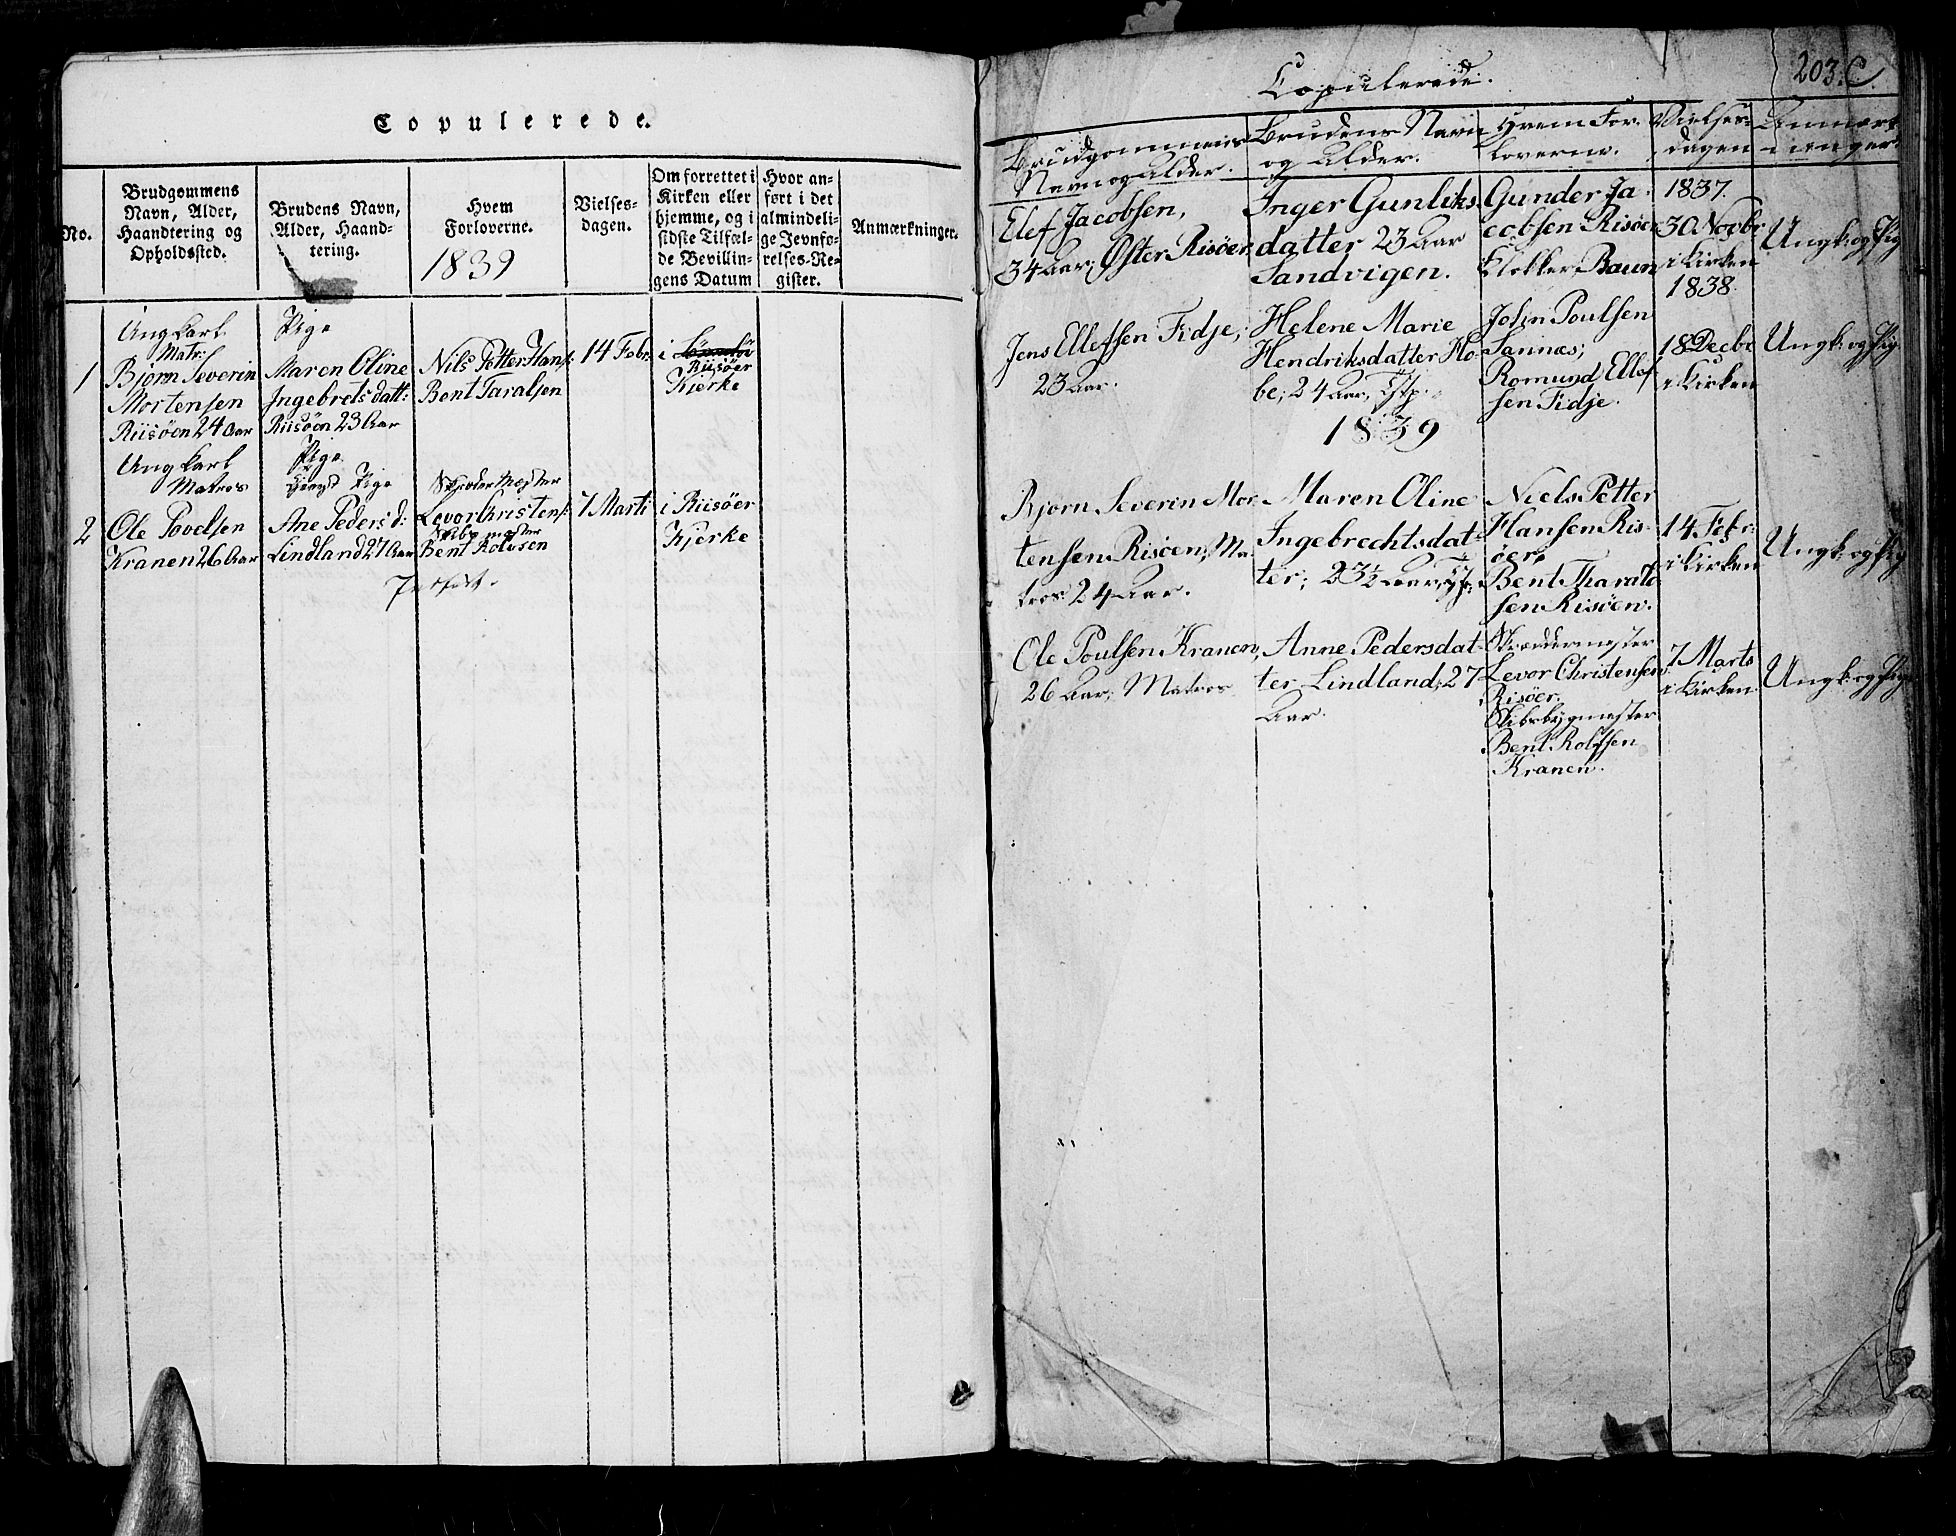 Copulerede.
No.
Brudgommens
Navn, Alder,
Haandtering og
Opholdssted.
Brudens Navn,
Alder, Haand-
tering.
Hvem
Forloverne.
1839
Vielses-
dagen.
Om forrettet i
Kirken eller
hjemme, og i
sidste Tilfæl-
de Bevillin-
gens Datum
Hvor an-
ført i det
almindeli-
ge Jevnfø-
relses-Re-
gister.
Anmærkninger.
1
Ungkarl
Matr:
Bjørn Severin
Mortensen
Riisöen 24 Aar
Pige
Maren Oline
Ingebrets datt:
Riisöen 23 Aar
Nils Petter Hans:
Bent Taralsen
14 Febr.
i
Riisöer
Kjerke
2
Ungkarl
Matros
Ole Povelsen
Kranen 26 Aar
Pige
Pige
Ane Peders d:
Lindland 27 Aar
Levor Christens:
Bent Rolvsen
7 Marti
i Riisöer
Kjerke
203.C.
Copulerede.
Brudgommens
Navn og Alder.
Brudens Navn
og Alder.
Hvem For-
loverne.
Vielses-
dagen
Anmærk-
ninger.
Elef Jacobsen,
34 Aar; Øster Risöer
Inger Gunliks-
datter 23 Aar
Sandvigen.
Gunder Ja-
cobsen Risöen
Klokker Baun
1837.
30 Novbr
i Kirken
Ungk: og Pig
1838.
Jens Ellefsen Fidje,
23 Aar.
Helene Marie
Hendriksdatter Ho-
be; 24 Aar,
John Poulsen
Sannæs;
Romund Ellef-
sen Fidje.
18 Decbr
i Kirken
Ungk: og Pig
1839
Bjørn Severin Mor-
tensen Risöen, Ma-
tros 24 Aar.
Maren Oline
Ingebrechtsdat-
ter; 23½ Aar,
Niels Petter
Hansen Ris-
öer,
Bent Tharald-
sen Risöen.
14 Febr:
i Kirken
Ungk: og Pig
Ole Poulsen Kranen,
26 Aar; Matros
Anne Pedersdat-
ter Lindland; 27
Aar.
Skræddermester
Levor Christensen
Risöer.
Skibsbygmester
Bent Rolfsen
Kranen.
7 Marts
i Kirken
Ungk: og Pig